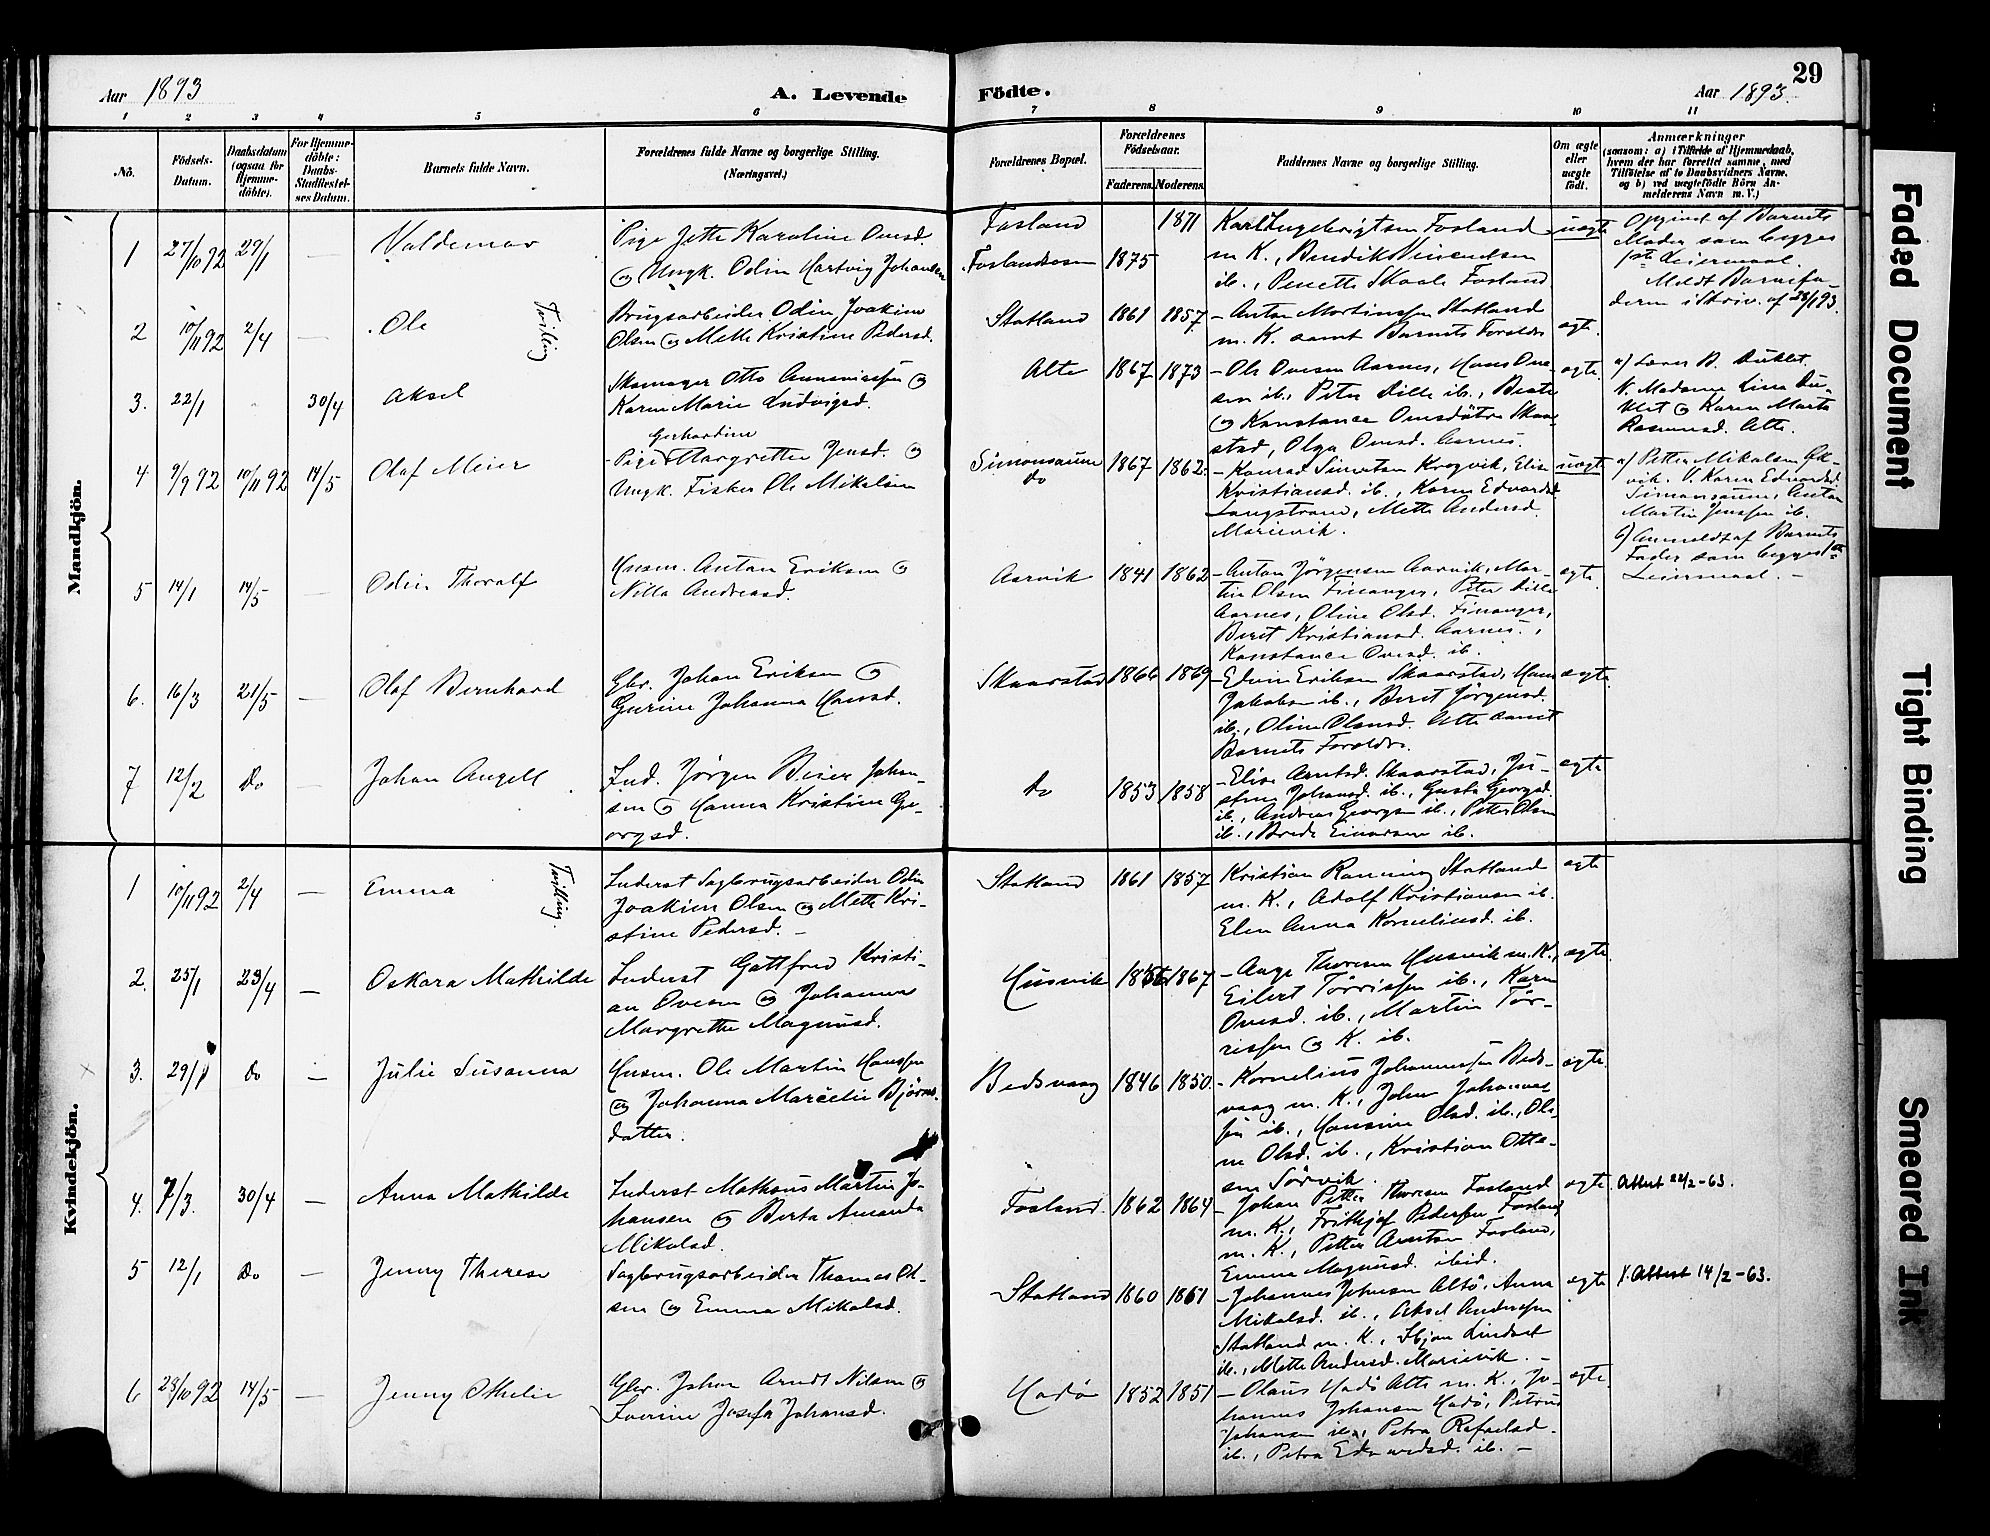 29
Aar 1893 A. Levende Födte. Aar 1893.
1 2 3 4 5 6 7 8 9 10 11
No. Födsels-Datum. Daabsdatum (ogsaa for Hjemme-döbte). For Hjemme-döbte: Daabs-Stadfæstel-ses Datum. Barnets fulde Navn. Forældrenes fulde Navne og borgerlige Stilling. (Næringsvei.) Forældrenes Bopæl. Forældrenes Födselsaar. Faderens. Moderens. Faddernes Navne og borgerlige Stilling. Om ægte eller uægte födt. Anmærkninger (saasom: a) i Tilfælde af Hjemmedaab, hvem der har forrettet samme, med Tilföielse af to Daabsvidners Navne, og b) ved uægtefödte Börn An-melderens Navn m. V.)
Mandkjön.
1 27/10 92 29/1 — Valdemar
Pige Jette Karoline Ovesd.
og Ungk. Odin Hartvig Johansen
Fosland 1871
Foslandsosen 1875
Karl Ingebrigtsen Fosland
m K., Bendik
ib., Penette Skaale Fosland
uægte
Opgivet af Barnets
Moder som begges
1ste Leiermaal.
Meldt Barnefa-
deren i Skriv. af 28/1 93.
2 10/11 92 2/4 — Ole Tvilling
Brugsarbeider Odin Joakim
Olsen og Mette Kristine Pedersd.
Statland 1861 1857
- Anton Mortinssen Statland
m. K. samt Barnets Forældre
ægte.
3. 22/1 30/4 Aksel
Skomager Otto og
Karen Marie Ludvigsd.
Alte 1867 1873
- Ole Ovesen Aarnes, Hans Ove-
sen ib., Peter Dille ib., Beate
og Konstance Ovesdötre Skaa-
stad, Olga Ovesd. Aarnes.
ægte.
a) Lærer B. Duklet.
V. Madame Lina Du-
klet og Karen Marta
Rasmusd. Alte.
4 9/9 92 10/11 92 14/5 Olaf Meier
Gerhardine
Pige Margrethe Jensd. og
Ungk. Fisker Ole Mikalsen
Simonsaune 1867 1862.
do
- Konrad Simonsen Krogvik, Elise
Kristiansd. ib., Karen Edvardsd.
Langstrand, Mette Andersd.
Marievik.
uægte
a) Petter Mikalsen
vik. V. Karen Edvardsd.
Simonsaune, Anton
Martin Jenssen ib.
b) Anmeldt af Barnets
Fader som begges 1ste
Leiermaal. -
5 14/1 14/5 — Odin Thoralf
Husm. Anton Eriksen og
Nilla Andreasd.
Aarvik 1841 1862
- Anton Jörgensen Aarvik, Mar-
tin Olsen Finanger, Peter Dille
Aarnes, Oline Olsd. Finanger,
Berit Kristiansd. Aarnes.,
Konstance Ovesd. ib.
ægte.
6. 16/3 21/5 — Olaf Bernhard
Gbr. Johan Eriksen og
Gurine Johanna Hansd.
Skaarstad 1866 1869
- Edvin Eriksen Skaarstad, Hans
Jakobsen ib., Berit Jörgensd.
ib., Oline Olausd. Alte samt
Barnets Forældre.
ægte.
7 12/2 Do — Johan Angell
Ind. Jörgen Beier Johan-
sen og Hanna Kristine Ge-
orgsd.
do 1853 1858
- Elise Arntsd. Skaarstad, Ju-
stine Johansd. ib., Gusta Georgsd.
ib., Andreas Georgsen ib., Petter Olsen
ib., Brede Einarsen ib.
ægte
Kvindekjön.
1 10/11 92 2/4 — Emma Tvilling.
Inderst Sagbrugsarbeider Odin
Joakim Olsen og Mette Kri-
stine Pedersd. -
Statland 1861 1857
Kristian Ranning Statland
m. K., Adolf Kristiansen ib.
Elen Anna Korneliusd. ib.
ægte
2. 25/1 23/4 — Oskara Mathilde
Inderst Gottfred Kristi-
an Ovesen og Johanna
Margrethe Magnusd.
Husvik 1867
- Aage Thoresen Husvik m. K.,
Eilert Törrissen ib., Karen
Ovesd. ib., Martin Tör-
rissen og K. ib.
ægte.
3. 29/1 Do — Julie Susanna
Husm. Ole Martin Hanssen
og Johanna Marcelie Björns-
datter.
Bedsvaag 1846 1850.
- Kornelius Johannessen Beds-
vaag m. K., John Johannes-
sen ib., Hansine Olsd. ib., Oli-
ne Olsd. ib., Kristian Otte-
sen Sörvik.
ægte.
4. 7/3. 30/4 — Anna Mathilde
Inderst Matheus Martin Jo-
hansen og Berta Amanda
Mikalsd.
Fosland. 1862 1864
- Johan Petter Thoresen Fosland
m. K., Frithjof Pedersen Fosland
m. K., Petter Arntsen Fosland,
Emma Magnusd. ibid.
ægte. Attest 22/2-63.
5 12/1 Do — Jenny Therese
Sagbrugsarbeider Thomas Ol-
sen og Emma Mikalsd.
Statland 1860 1861
- Johannes Johnsen Altö, Anna
Mikalsd. ib., Aksel Anderssen
Statland m. K., Lindset
ib., Mette Andersd. Marievik. -
ægte. Attest 14/2-63.
6 28/10 92 14/5 — Jenny Othelie
Gbr. Johan Arndt Nilsen og
Josefa Johansd.
Hadö 1852 1851
- Olaus Hadö Alte m. K., Jo-
hannes Johansen Hadö, Petrus
Johansen ib., Petra Rafaelsd.
ib., Petra Edvardsd. ib. -
ægte.
Faded Document
Tight Binding
Smeared Ink